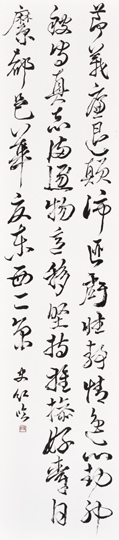 節義廉退顛沛匪虧性靜情逸心動神
疲守真志滿逐物意移堅持雅操好爵自
縻都邑華夏東西二京